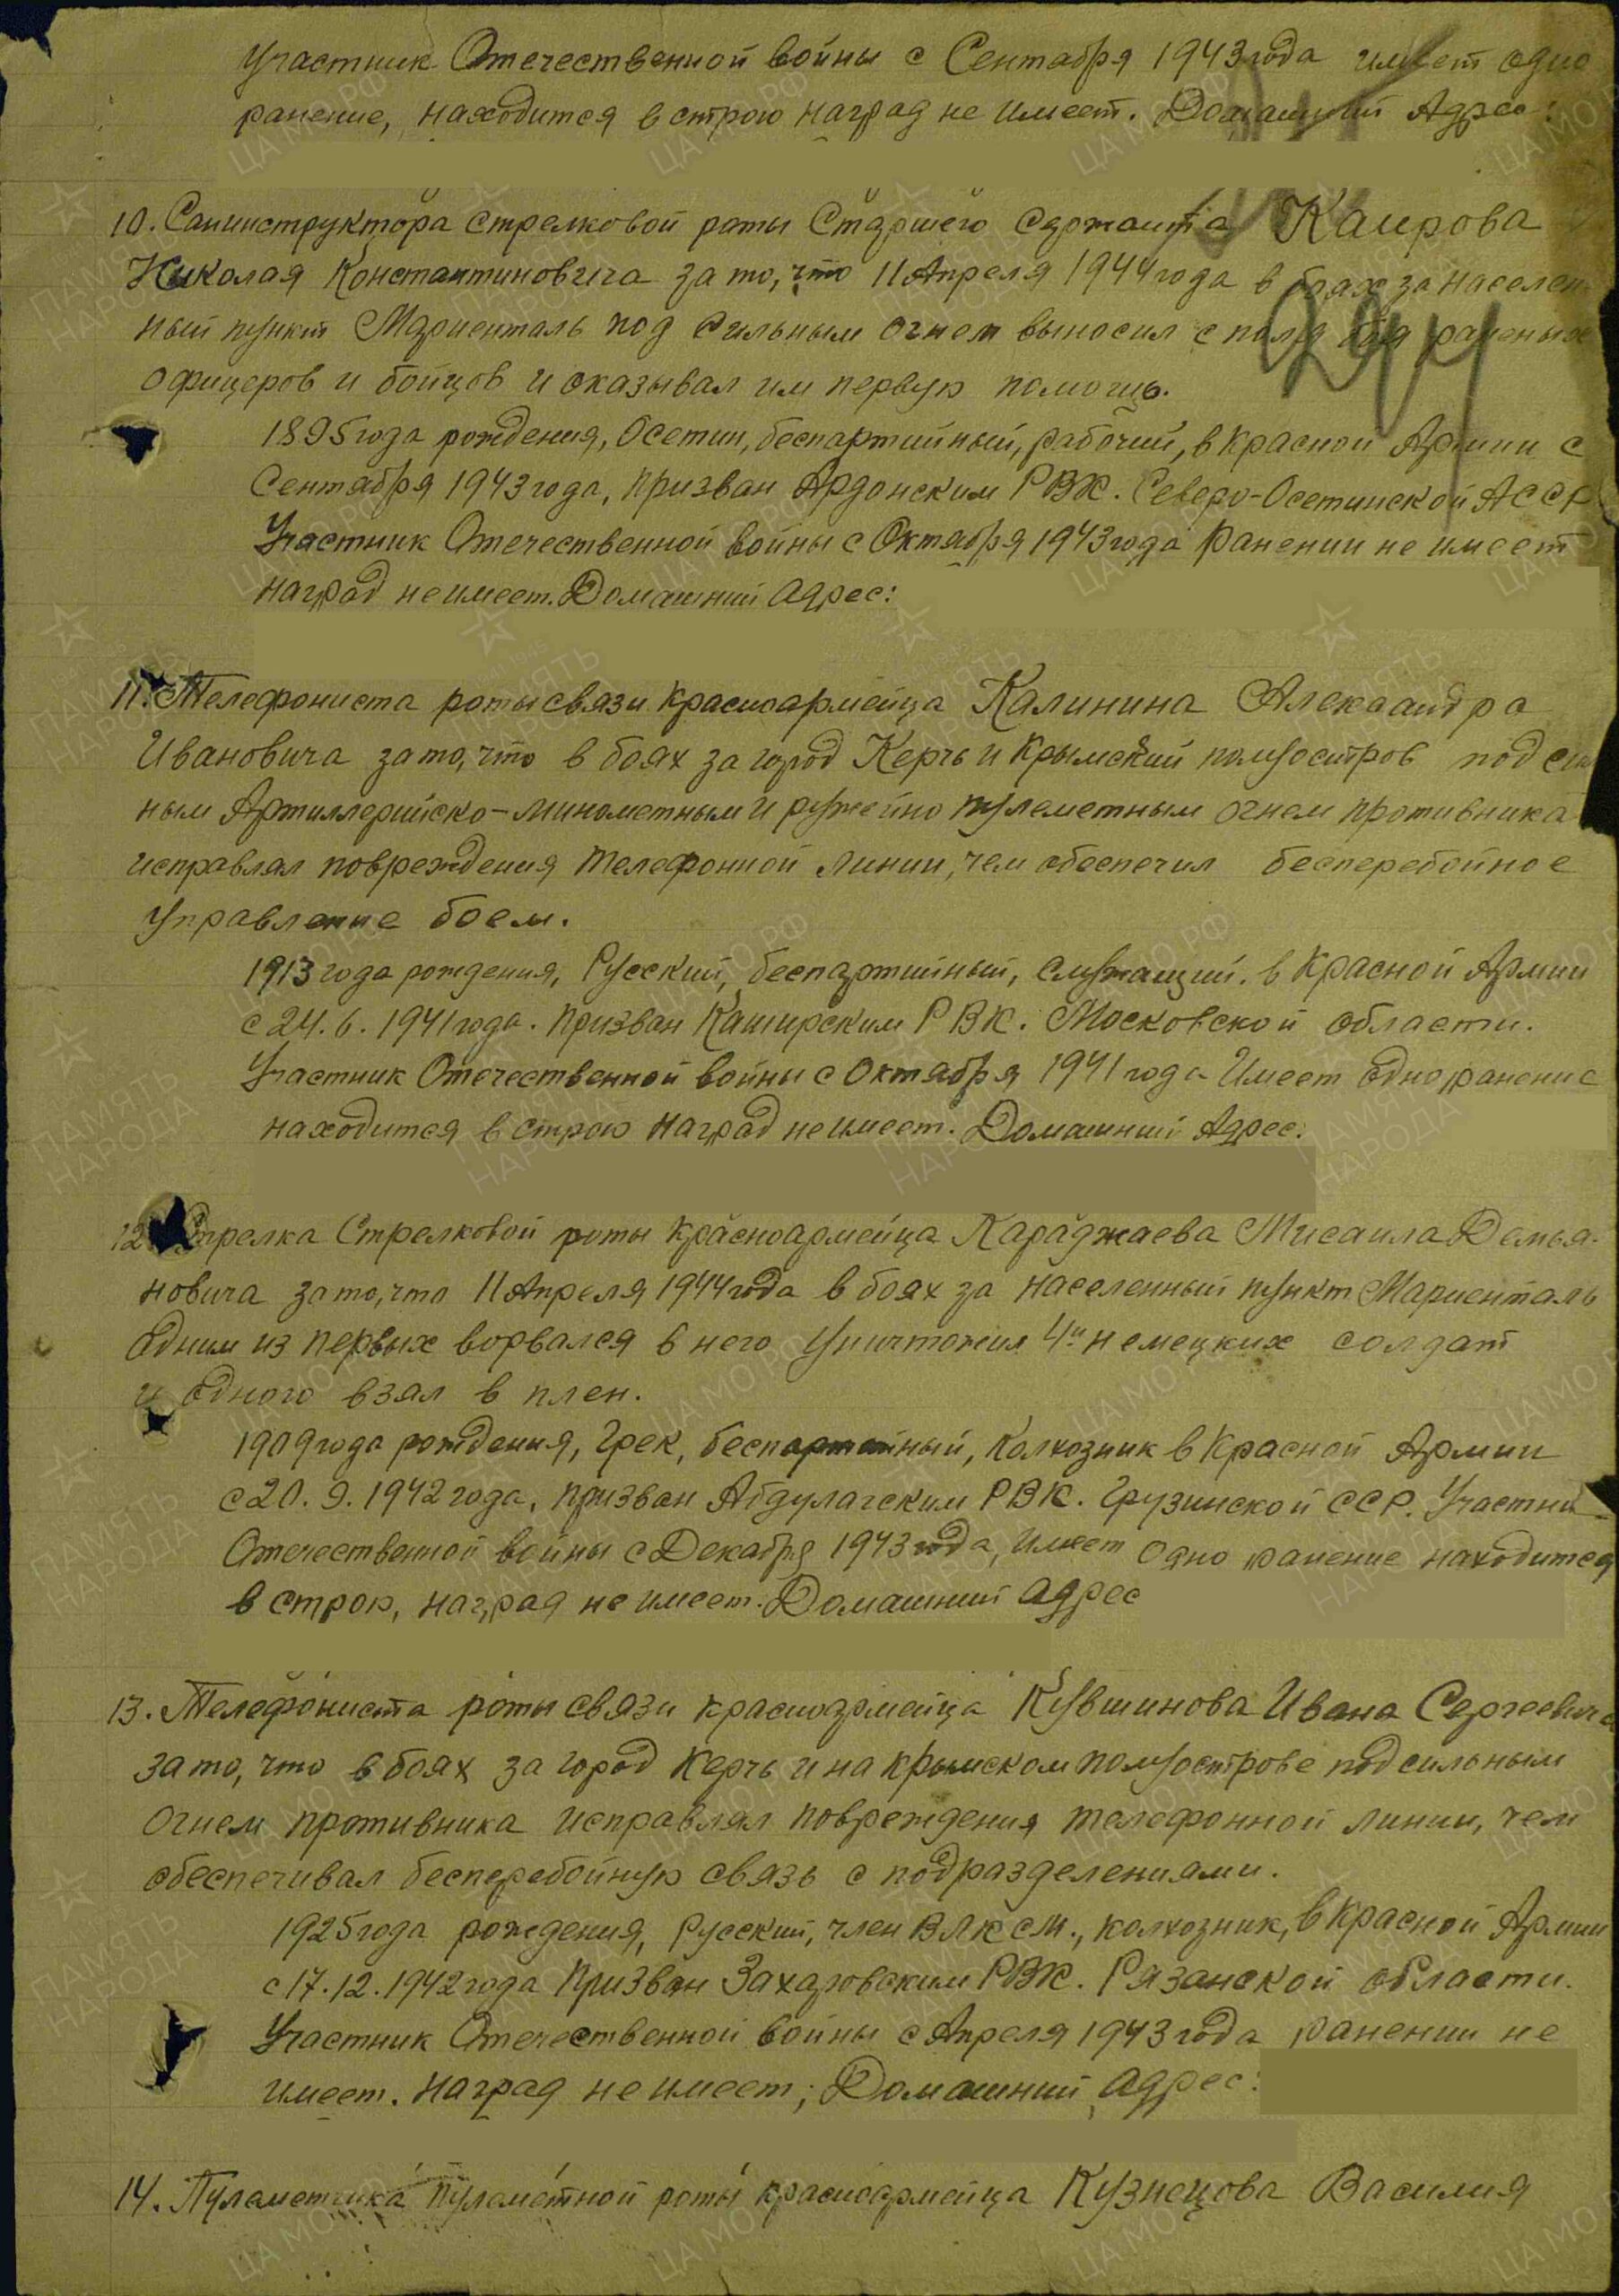 Участник Отечественной войны с Сентября 1943 года имеет одно
ранение, находится в строю наград не имеет. Домашний Адрес:
10. Санинструктора стрелковой роты Старшего сержанта Каирова
Николая Константиновича за то, что 11 Апреля 1944 года в боях за населен-
ный пункт Мариенталь под сильным огнем выносил с поля боя раненых
офицеров и бойцов и оказывал им первую помощь.
1895 года рождения, Осетин, беспартийный, рабочий, в Красной Армии с
Сентября 1943 года, призван Ардонским РВК. Северо-Осетинской АССР
Участник Отечественной войны с Октября 1943 года Ранении не имеет
наград не имеет. Домашний адрес:
11. Телефониста роты связи красноармейца Калинина Александра
Ивановича за то, что в боях за город Керчь и Крымский полуостров под силь
ным Артиллерийско-минометным и ружейно пулеметным огнем противника
исправлял повреждения телефонной линии, чем обеспечил бесперебойное
управление боем.
1913 года рождения, Русский, беспартийный, служащий. в Красной Армии
с 24.6.1941 года. призван Каширским РВК. Московской области.
Участник Отечественной войны с Октября 1941 года Имеет одно ранение
находится в строю наград не имеет. Домашний Адрес:
12. Стрелка Стрелковой роты красноармейца Караджаева Мисаила Демья-
новича за то, что 11 Апреля 1944 года в боях за населенный пункт Мариенталь
одним из первых ворвался в него уничтожил 4-х немецких солдат
и одного взял в плен.
1909 года рождения, Грек, беспартийный, колхозник в Красной Армии
с 20.9.1942 года, призван Абдулагским РВК. Грузинской ССР. Участник
Отечественной войны с Декабря 1943 года, имеет одно ранение находится
в строю, наград не имеет. Домашний адрес
13. Телефониста роты связи красноармейца Кувшинова Ивана Сергеевича
за то, что в боях за город Керчь и на крымском полуострове под сильным
огнем противника исправлял повреждения телефонной линии, чем
обеспечивал бесперебойную связь с подразделениями.
1925 года рождения, Русский, член ВЛКСМ., колхозник, в Красной Армии
с 17.12.1942 года призван Захаровским РВК. Рязанской области.
Участник Отечественной войны с Апреля 1943 года ранении не
имеет. наград не имеет; Домашний адрес:
14. Пулеметчика пулеметной роты красноармейца Кузнецова Василия